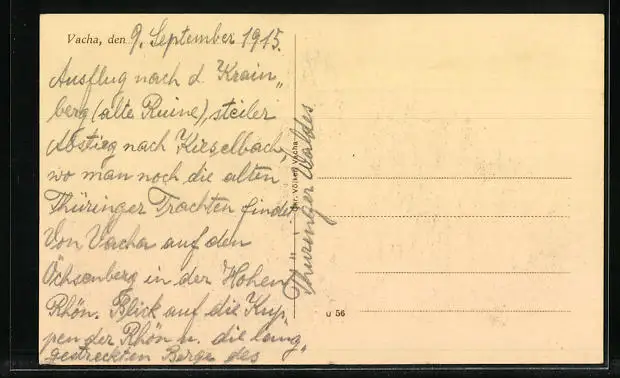 Vacha, den 9. September 1915.
Ausflug nach d. Krain„
berg (alte Ruine), steiler
Abstieg nach Kieselbach,
wo man noch die alten
Thüringer Trachten findet
Von Vacha auf den
Öchsenberg in der Hohen
Rhön. Blick auf die Kup„
pen der Rhön u. die lang„
gestreckten Berge des
Thüringer Waldes
Völker, Vacha
U 56